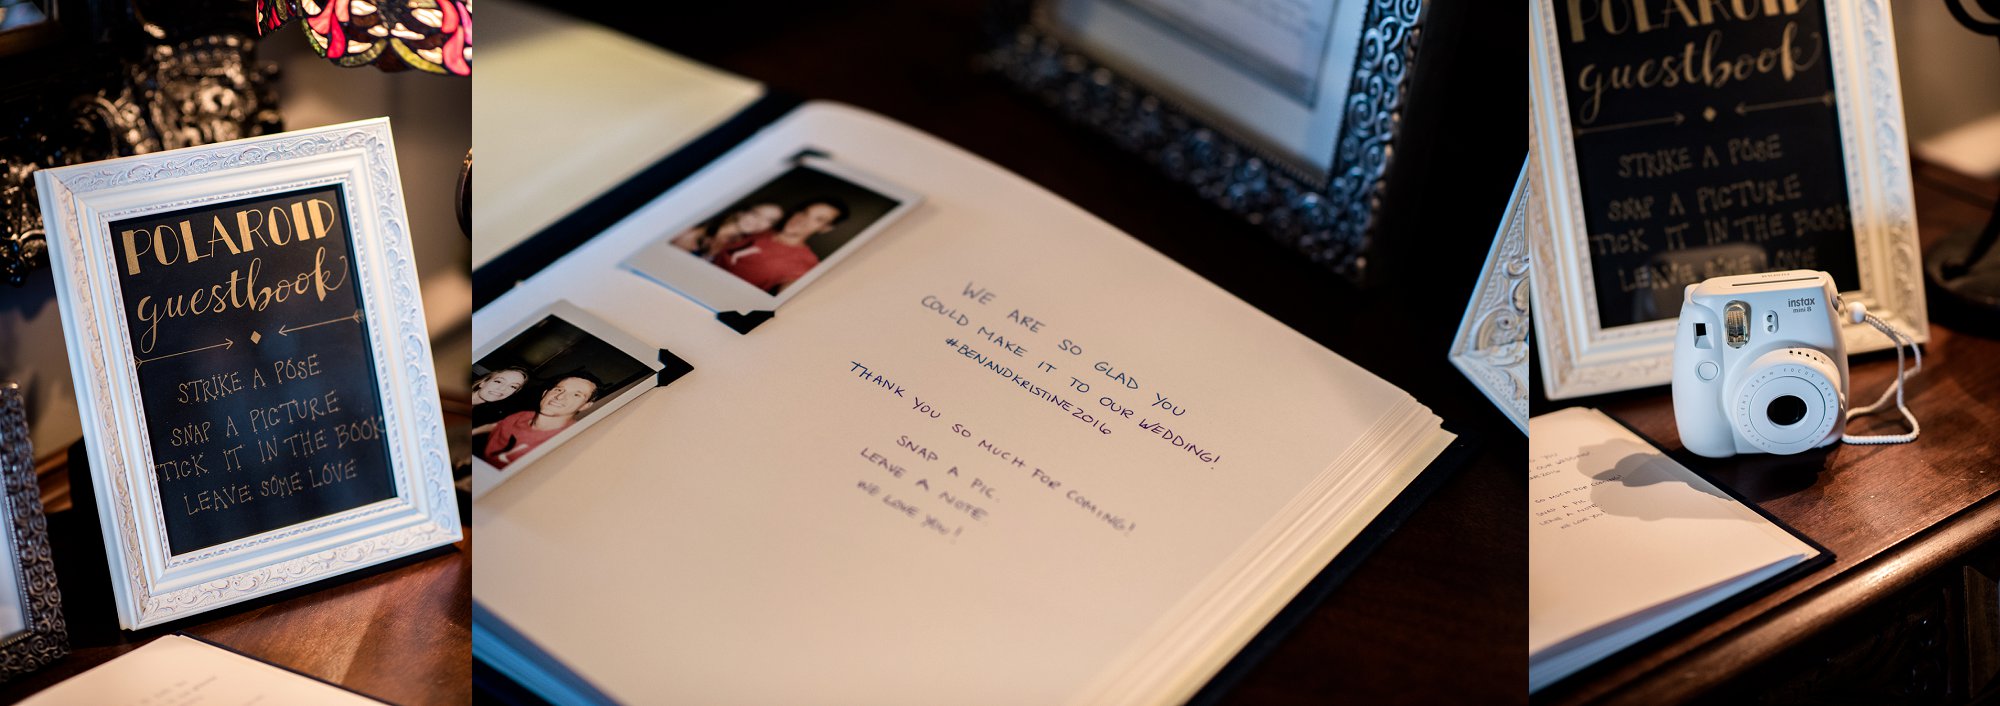 POLAROID
guestbook
STRIKE A POSE
SNAP A PICTURE
STICK IT IN THE BOOK
LEAVE SOME LOVE
WE ARE SO GLAD YOU
COULD MAKE IT TO OUR WEDDING!
#BENANDKRISTINE2016
THANK YOU SO MUCH FOR COMING!
SNAP A PIC.
LEAVE A NOTE.
WE LOVE YOU!
POLAROID
guestbook
STRIKE A POSE
SNAP A PICTURE
TICK IT IN THE BOOK
LEAVE SOME LOVE
instax
mini 8
YOU
OUR WEDDING!
SO MUCH FOR COMING!
SNAP A PIC.
LEAVE A NOTE.
WE LOVE YOU!